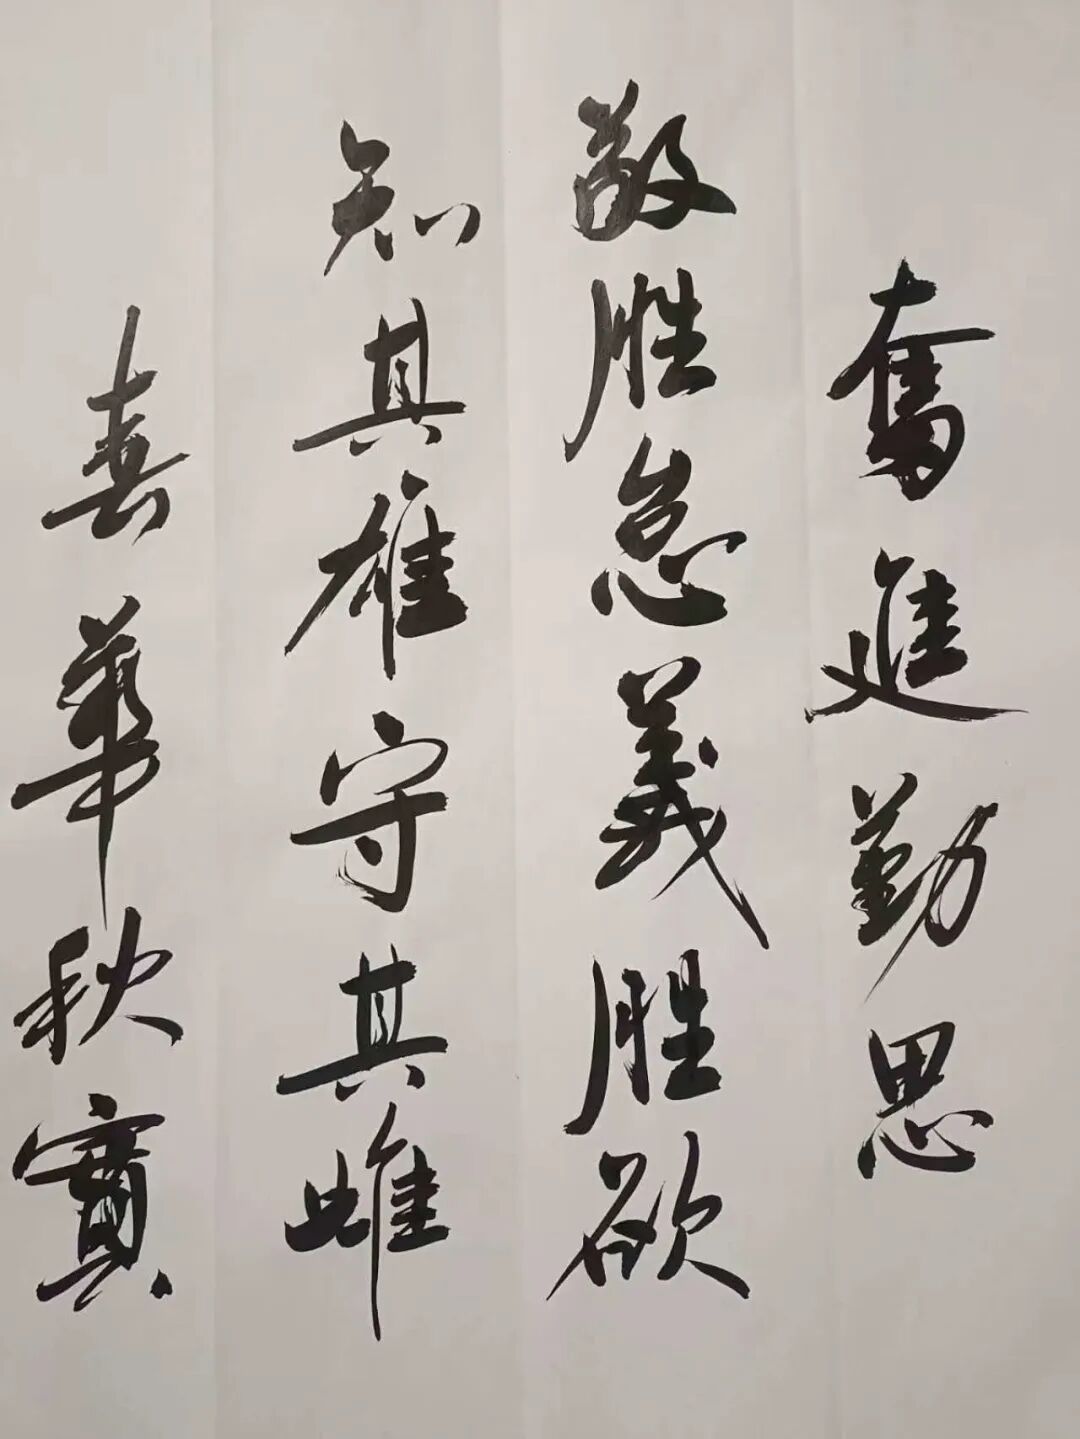 奮進勤思
敬胜怠義胜欲
知其雄守其雌
春華秋實